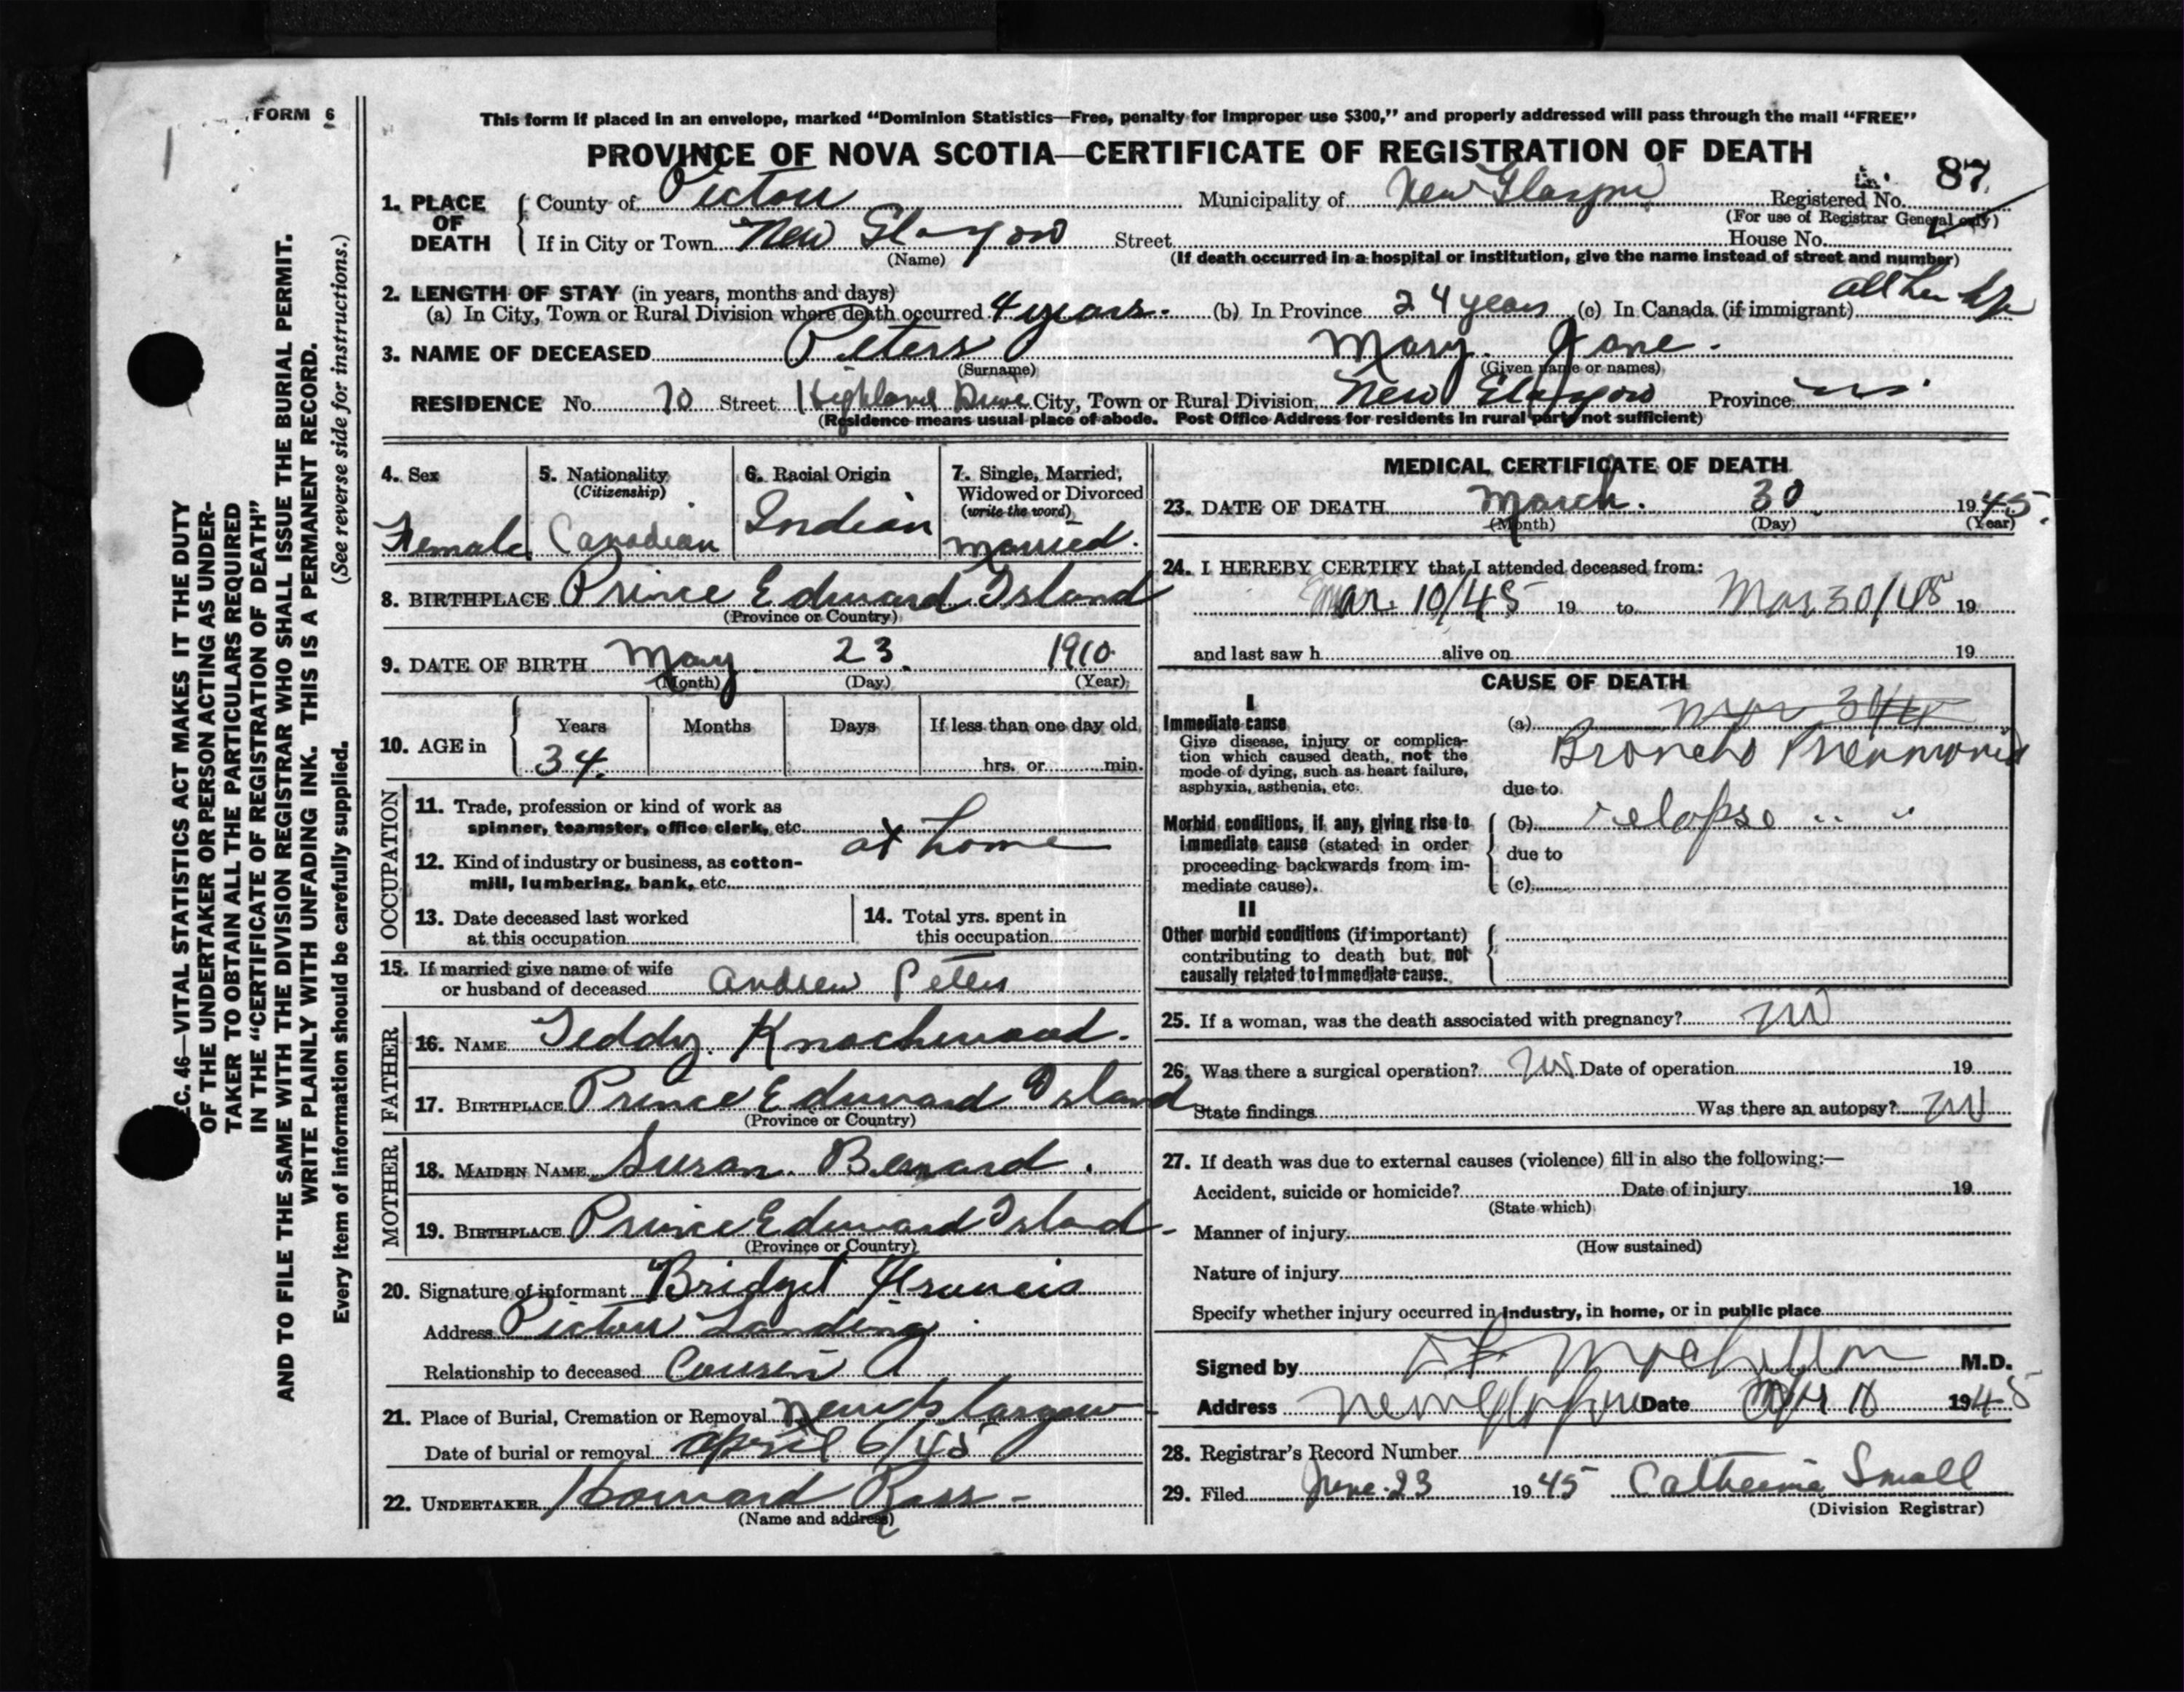 FORM 6
This form if placed in an envelope, marked “Dominion Statistics—Free, penalty for improper use $300,” and properly addressed will pass through the mail “FREE”
PROVINCE OF NOVA SCOTIA—CERTIFICATE OF REGISTRATION OF DEATH
87
1. PLACE OF DEATH { County of Pictou Municipality of New Glasgow Registered No.
(For use of Registrar General only)
If in City or Town New Glasgow Street House No.
(Name) (If death occurred in a hospital or institution, give the name instead of street and number)
2. LENGTH OF STAY (in years, months and days)
(a) In City, Town or Rural Division where death occurred 4 years. (b) In Province 24 years (c) In Canada (if immigrant) all her life
3. NAME OF DECEASED Peters Mary Jane.
(Surname) (Given name or names)
RESIDENCE No. 70 Street Highland Drive City, Town or Rural Division New Glasgow Province N.S.
(Residence means usual place of abode. Post Office Address for residents in rural parts not sufficient)
4. Sex Female
5. Nationality (Citizenship) Canadian
6. Racial Origin Indian
7. Single, Married, Widowed or Divorced (write the word) Married.
8. BIRTHPLACE Prince Edward Island
(Province or Country)
9. DATE OF BIRTH May 23. 1910
(Month) (Day) (Year)
10. AGE in { Years Months Days If less than one day old
34. hrs. or min.
OCCUPATION
11. Trade, profession or kind of work as
spinner, teamster, office clerk, etc. at home
12. Kind of industry or business, as cotton-
mill, lumbering, bank, etc.
13. Date deceased last worked
at this occupation
14. Total yrs. spent in
this occupation
15. If married give name of wife
or husband of deceased Andrew Peters
FATHER
16. NAME Teddy Knochwood.
17. BIRTHPLACE Prince Edward Island
(Province or Country)
MOTHER
18. MAIDEN NAME Susan Bernard.
19. BIRTHPLACE Prince Edward Island
(Province or Country)
20. Signature of informant Bridget Francis
Address Pictou Landing
Relationship to deceased Cousin
21. Place of Burial, Cremation or Removal New Glasgow
Date of burial or removal April 6/45
22. UNDERTAKER Howard Ross
(Name and address)
MEDICAL CERTIFICATE OF DEATH
23. DATE OF DEATH March. 30 1945.
(Month) (Day) (Year)
24. I HEREBY CERTIFY that I attended deceased from:
Mar 10/45 19 to Mar 30/45 19
and last saw h alive on 19
CAUSE OF DEATH
I
Immediate cause (a)
Give disease, injury or complica-
tion which caused death, not the
mode of dying, such as heart failure,
asphyxia, asthenia, etc.
Broncho Pneumonia
due to
Morbid conditions, if any, giving rise to (b) relapse " "
immediate cause (stated in order due to
proceeding backwards from im-
mediate cause). (c)
II
Other morbid conditions (if important)
contributing to death but not
causally related to immediate cause.
25. If a woman, was the death associated with pregnancy? no
26. Was there a surgical operation? no Date of operation 19
State findings Was there an autopsy? no
27. If death was due to external causes (violence) fill in also the following:—
Accident, suicide or homicide? Date of injury 19
(State which)
Manner of injury
(How sustained)
Nature of injury
Specify whether injury occurred in industry, in home, or in public place
Signed by M.D.
Address New Glasgow Date 1945
28. Registrar's Record Number
29. Filed June 23 1945 Catherine Small
(Division Registrar)
EC. 46—VITAL STATISTICS ACT MAKES IT THE DUTY
OF THE UNDERTAKER OR PERSON ACTING AS UNDER-
TAKER TO OBTAIN ALL THE PARTICULARS REQUIRED
IN THE “CERTIFICATE OF REGISTRATION OF DEATH”
AND TO FILE THE SAME WITH THE DIVISION REGISTRAR WHO SHALL ISSUE THE BURIAL PERMIT.
WRITE PLAINLY WITH UNFADING INK. THIS IS A PERMANENT RECORD.
Every item of information should be carefully supplied. (See reverse side for instructions.)